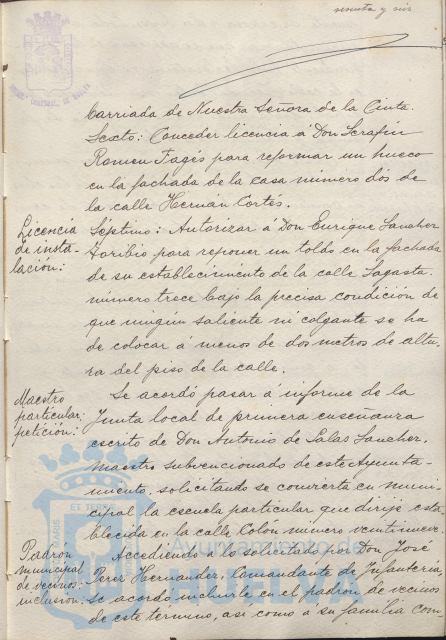 sesenta y seis
barriada de Nuestra Señora de la Cinta.
Sexto: Conceder licencia á Don Serafín
Romeu Fagés para reformar un hueco
en la fachada de la casa número dos de
la calle Hernan Cortés.
Licencia
de insta-
lación:
Séptimo: Autorizar á Don Enrique Sanchez
Toribio para reponer un toldo en la fachada
de su establecimiento de la calle Sagasta
número trece bajo la precisa condición de
que ningún saliente ni colgante se ha
de colocar á menos de dos metros de altu-
ra del piso de la calle.
Maestro
particular;
petición:
Se acordó pasar á informe de la
Junta local de primera enseñanza
escrito de Don Antonio de Salas Sanchez,
maestro subvencionado de este Ayunta-
miento, solicitando se convierta en muni-
cipal la escuela particular que dirije esta-
blecida en la calle Colón número veintinueve.
Padrón
municipal
de vecinos:
inclusión:
Accediendo á lo solicitado por Don José
Perez Hernandez, Comandante de Infantería
se acordó incluirle en el padrón de vecinos
de este término, así como á su familia com
Ayuntamiento de
HUELVA